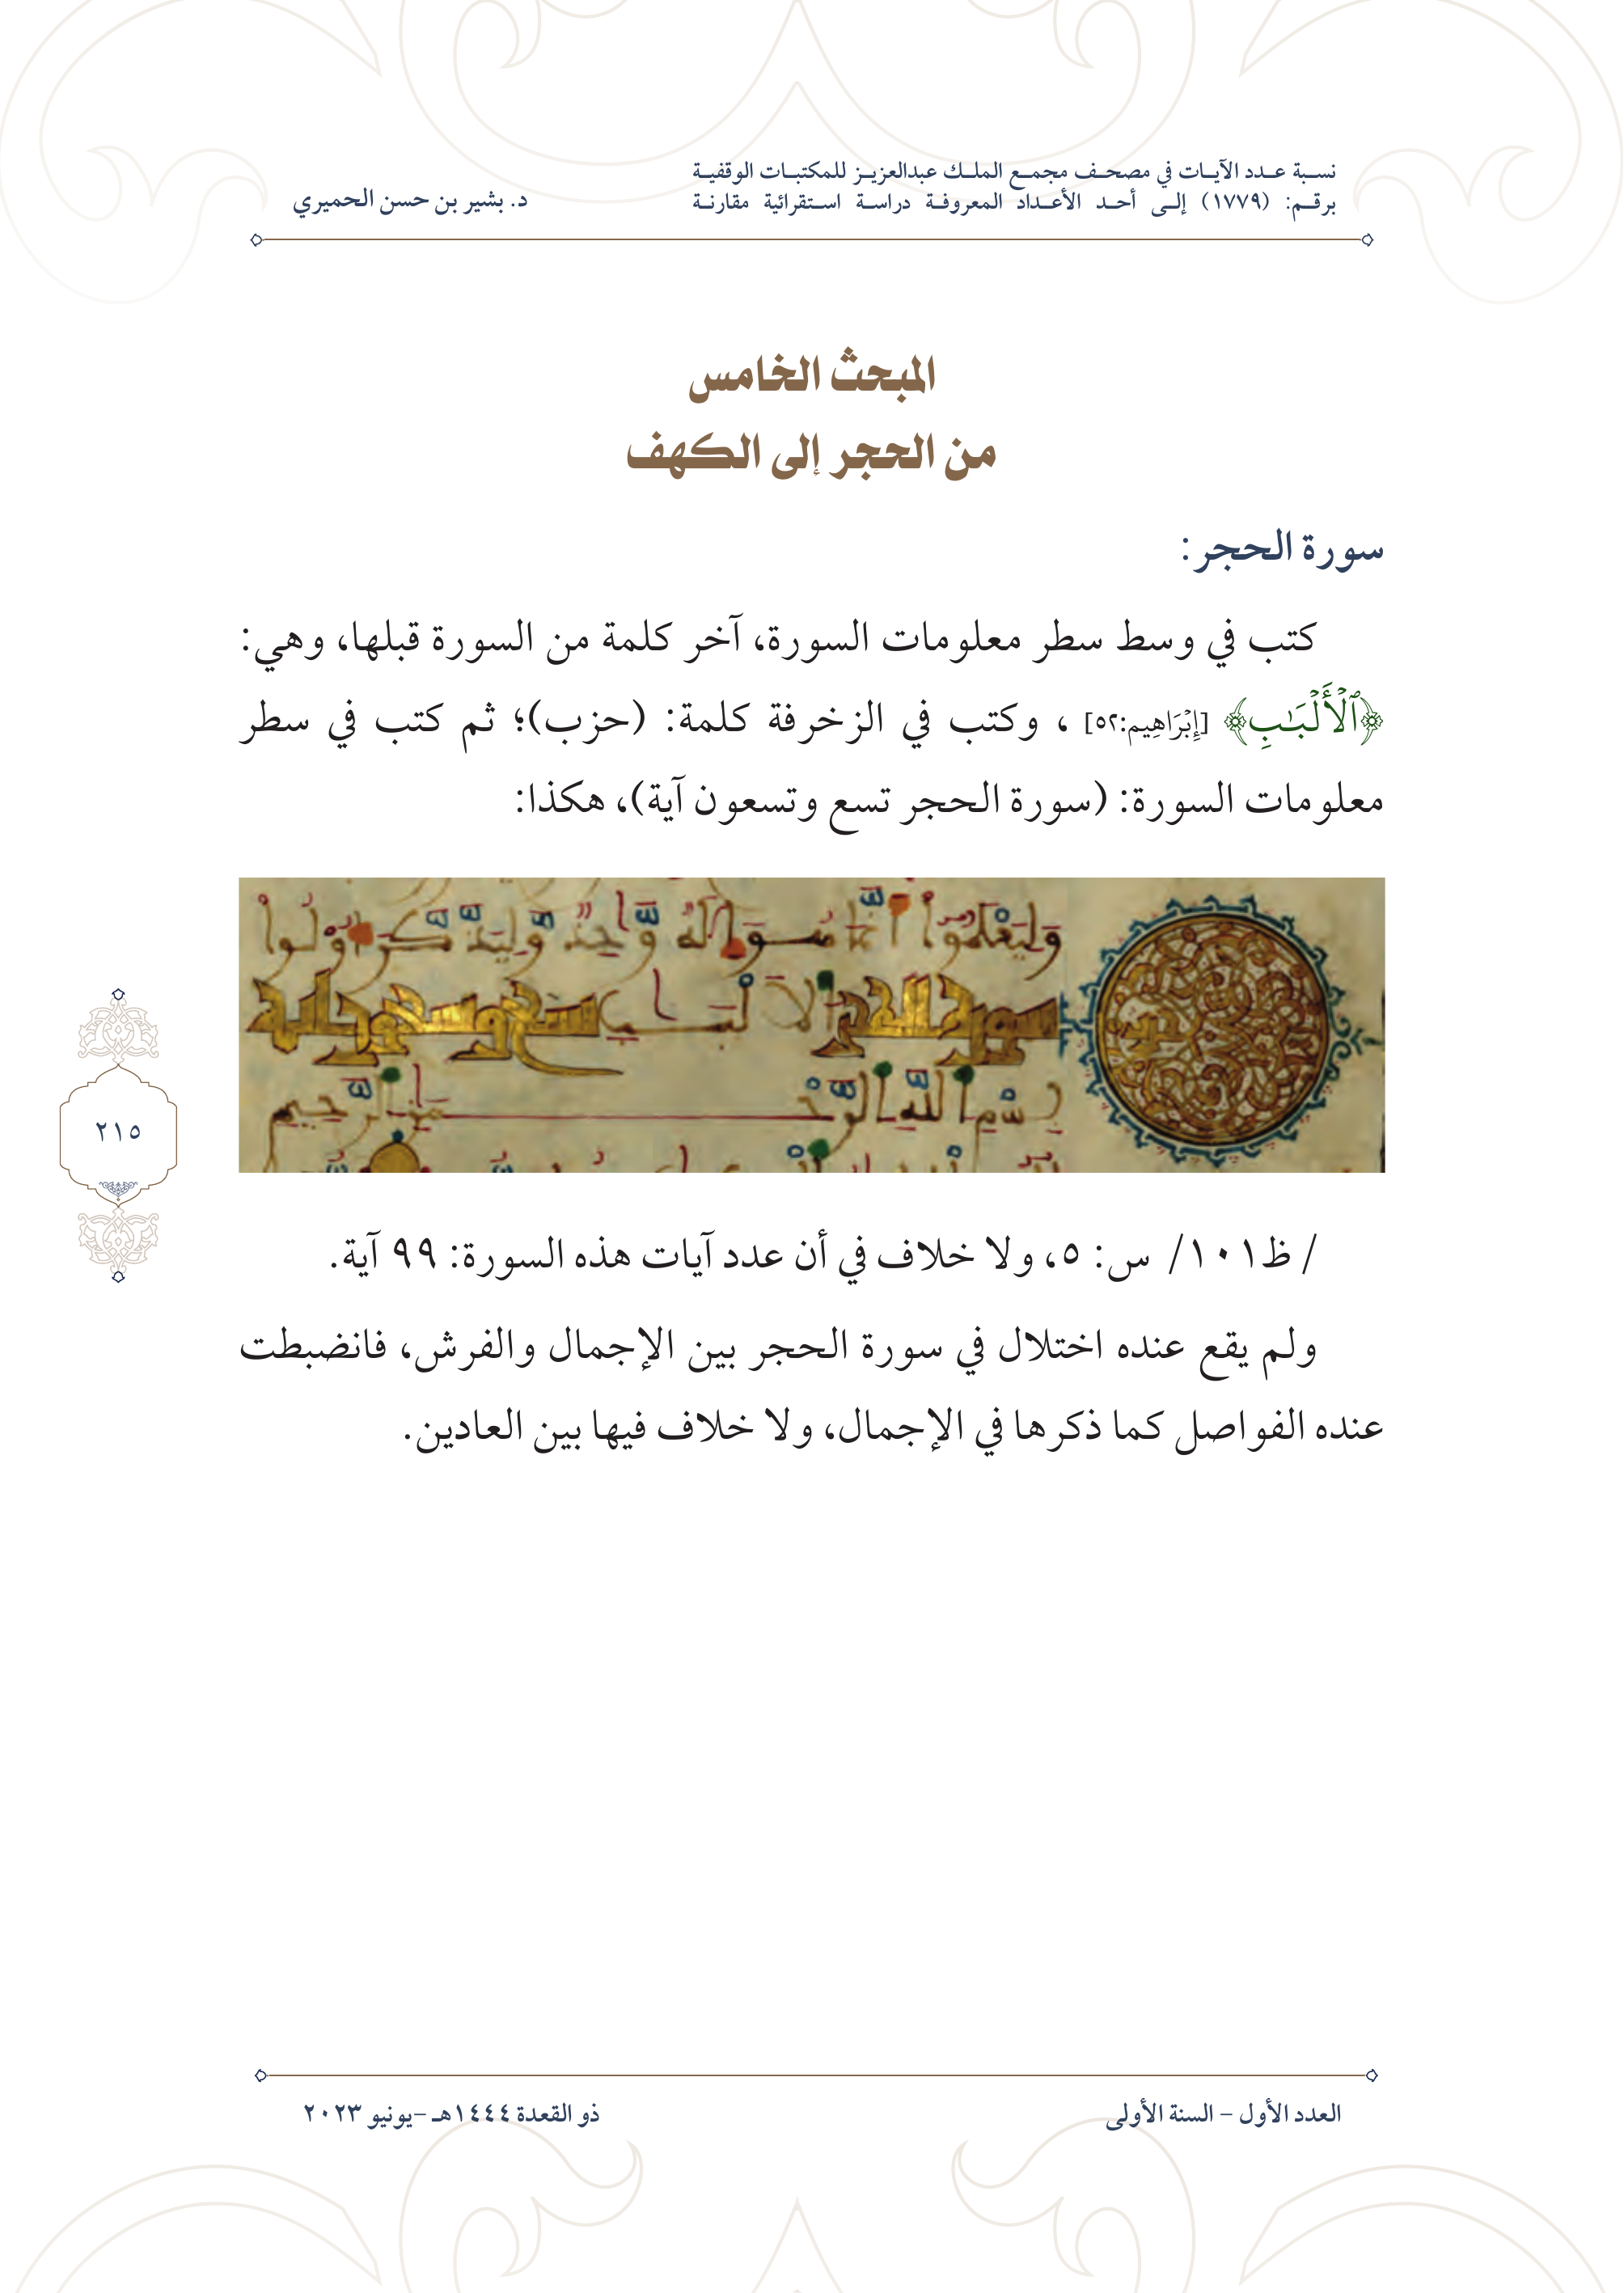 نسبة عدد الآيات في مصحف مجمع الملك عبدالعزيز للمكتبات الوقفية
برقم: (١٧٧٩) إلى أحد الأعداد المعروفة دراسة استقرائية مقارنة
د. بشير بن حسن الحميري
المبحث الخامس
من الحجر إلى الكهف
سورة الحجر:
كتب في وسط سطر معلومات السورة، آخر كلمة من السورة قبلها، وهي:
﴿ٱلۡأَلۡبَٰبِ﴾ [إِبۡرَاهِيم:٥٢] ، وكتب في الزخرفة كلمة: (حزب)؛ ثم كتب في سطر
معلومات السورة: (سورة الحجر تسع وتسعون آية)، هكذا:
وَلِيَعْلَمُوا أَنَّمَا هُوَ إِلَهٌ وَّحِدٌ وَّلِيَذَّكَّرَ أُوْلُوا
سورة الحجر الألبب تسع وتسعون آية
بسم الله الرحمن الرحيم
٢١٥
/ ظ١٠١/ س: ٥، ولا خلاف في أن عدد آيات هذه السورة: ٩٩ آية.
ولم يقع عنده اختلال في سورة الحجر بين الإجمال والفرش، فانضبطت
عنده الفواصل كما ذكرها في الإجمال، ولا خلاف فيها بين العادين.
العدد الأول – السنة الأولى
ذو القعدة ١٤٤٤هـ –يونيو ٢٠٢٣